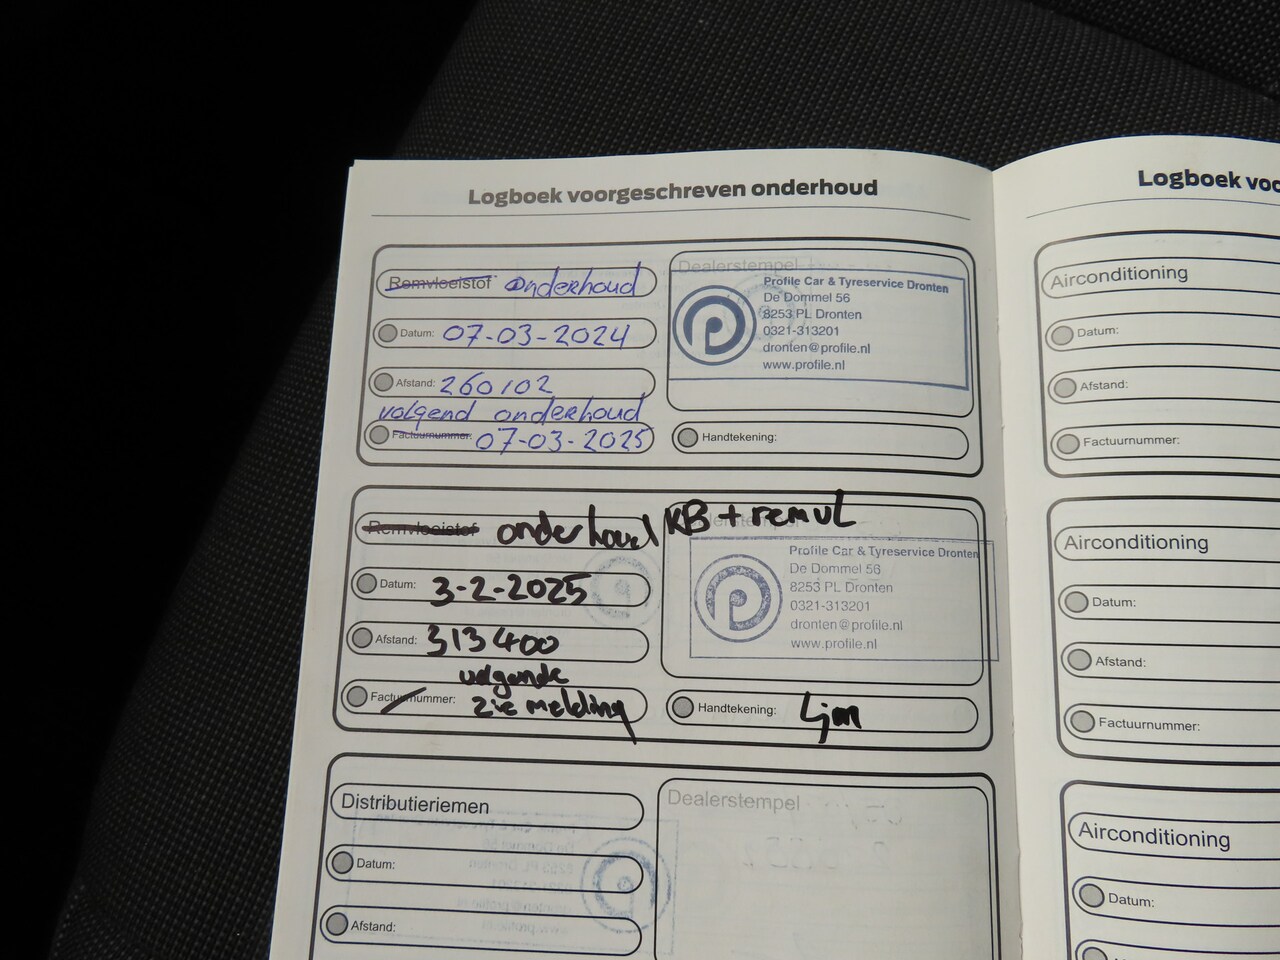 Logboek voorgeschreven onderhoud
Remvloeistof onderhoud
Datum: 07-03-2024
Afstand: 260102
volgend onderhoud
Factuurnummer: 07-03-2025
Dealerstempel
Profile Car & Tyreservice Dronten
De Dommel 56
8253 PL Dronten
0321-313201
dronten@profile.nl
www.profile.nl
Handtekening:
Remvloeistof onderhoud KB + remvl
Datum: 3-2-2025
Afstand: 313400
volgende
Factuurnummer: zie melding
Dealerstempel
Profile Car & Tyreservice Dronten
De Dommel 56
8253 PL Dronten
0321-313201
dronten@profile.nl
www.profile.nl
Handtekening:
Distributieriemen
Datum:
Afstand:
Dealerstempel
Logboek voo
Airconditioning
Datum:
Afstand:
Factuurnummer:
Airconditioning
Datum:
Afstand:
Factuurnummer:
Airconditioning
Datum: